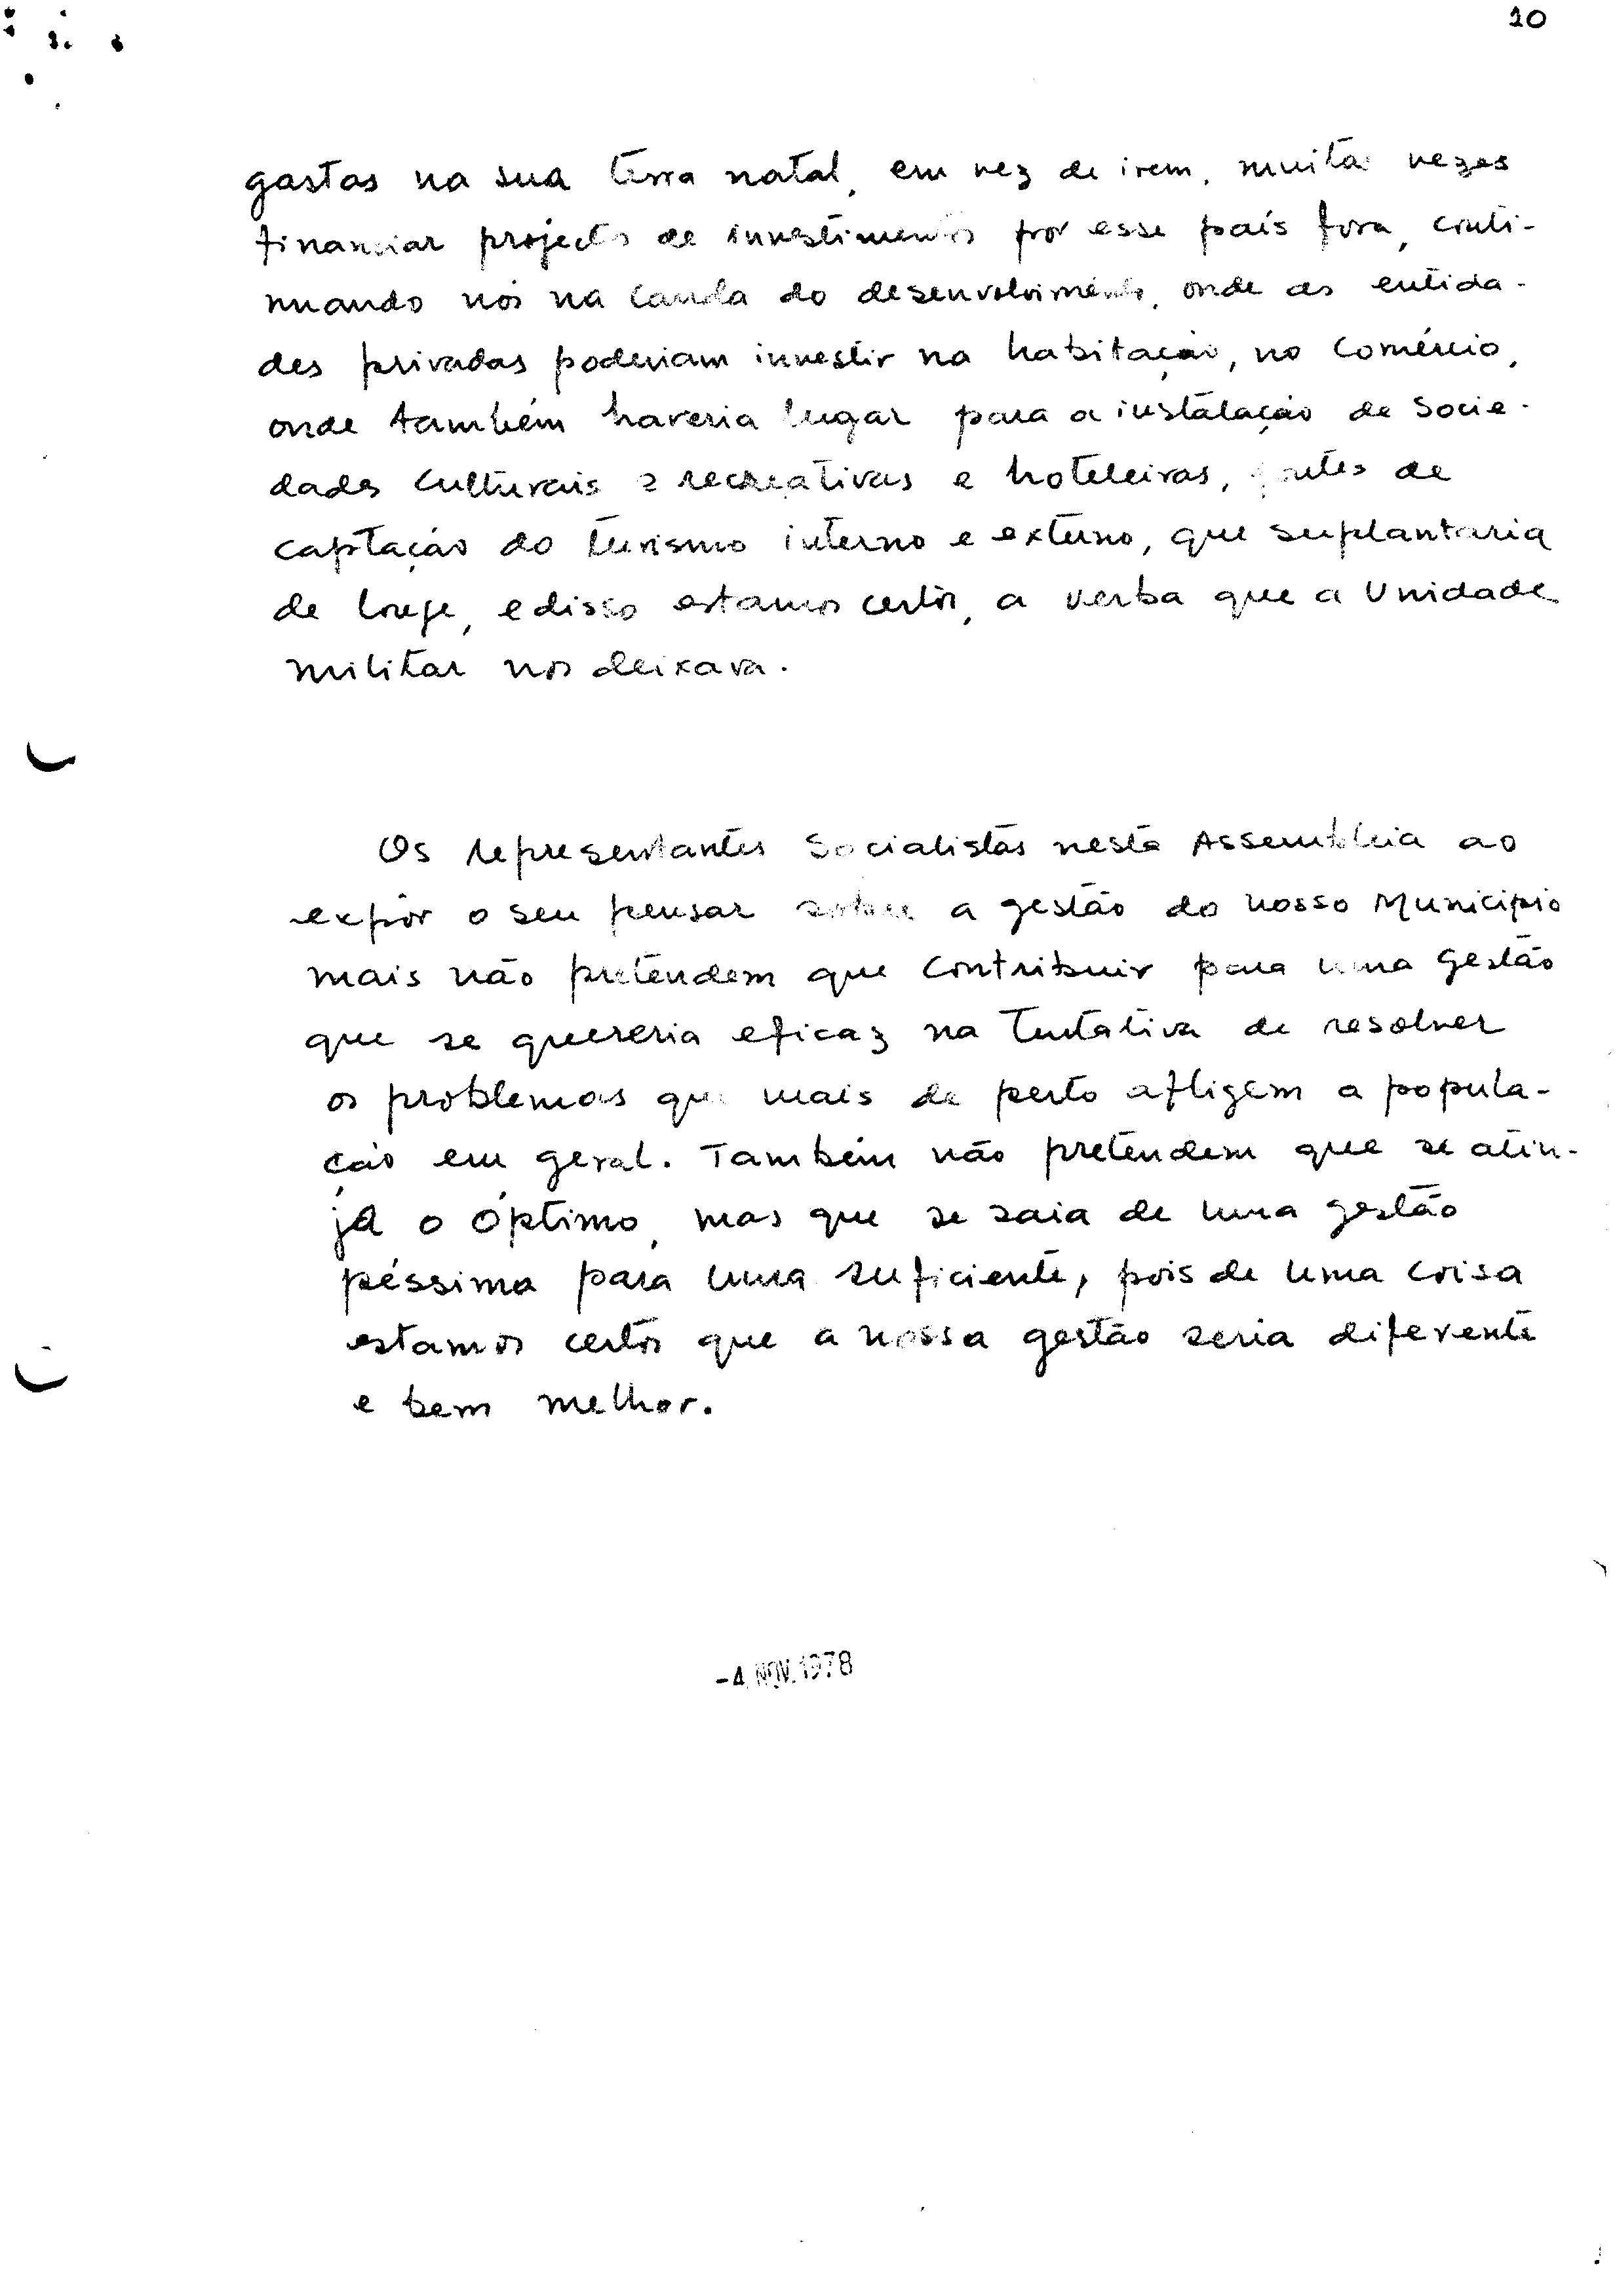 10
gastas na sua terra natal, em vez de irem, muitas vezes
financiar projectos de investimentos por esse país fora, conti-
nuando nós na cauda do desenvolvimento, onde as entida-
des privadas poderiam investir na habitação, no comércio,
onde também haveria lugar para a instalação de Socie-
dades Culturais e recreativas e hoteleiras, fontes de
captação do turismo interno e externo, que suplantaria
de longe, e disso estamos certos, a verba que a Unidade
militar nos deixava.
Os representantes Socialistas nesta Assembleia ao
expôr o seu pensar sobre a gestão do nosso Município
mais não pretendem que contribuir para uma gestão
que se quereria eficaz na tentativa de resolver
os problemas que mais de perto afligem a popula-
ção em geral. Também não pretendem que se atin-
ja o óptimo, mas que se saia de uma gestão
péssima para uma suficiente, pois de uma coisa
estamos certos que a nossa gestão seria diferente
e bem melhor.
-4. NOV. 1978